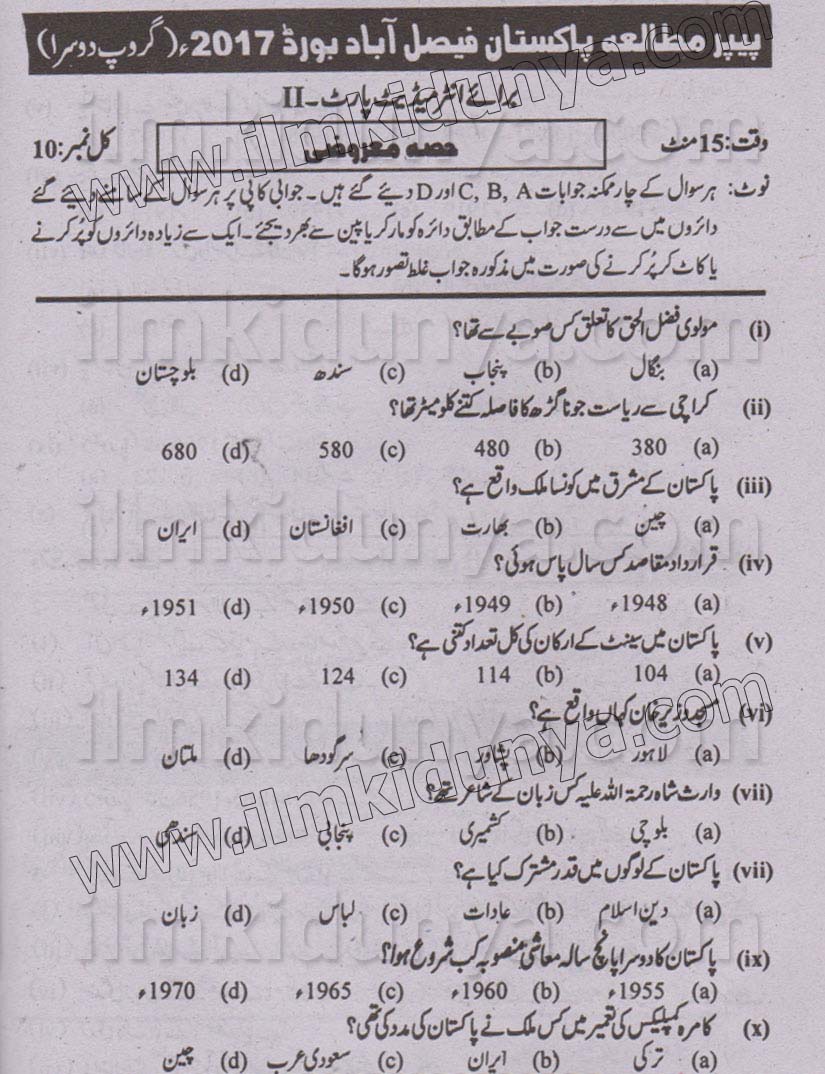 پیپر مطالعہ پاکستان فیصل آباد بورڈ 2017ء (گروپ دوسرا)
برائے انٹرمیڈیٹ پارٹ ۔ II
وقت: 15 منٹ حصہ معروضی کل نمبر: 10
نوٹ: ہر سوال کے چار ممکنہ جوابات C, B, A اور D دیئے گئے ہیں۔ جوابی کاپی پر ہر سوال کے سامنے دیئے گئے
دائروں میں سے درست جواب کے مطابق دائرہ کو مارکر یا پین سے بھر دیجئے۔ ایک سے زیادہ دائروں کو پُر کرنے
یا کاٹ کر پُر کرنے کی صورت میں مذکورہ جواب غلط تصور ہوگا۔
(i) مولوی فضل الحق کا تعلق کس صوبے سے تھا؟
(a) بنگال (b) پنجاب (c) سندھ (d) بلوچستان
(ii) کراچی سے ریاست جونا گڑھ کا فاصلہ کتنے کلو میٹر تھا؟
(a) 380 (b) 480 (c) 580 (d) 680
(iii) پاکستان کے مشرق میں کونسا ملک واقع ہے؟
(a) چین (b) بھارت (c) افغانستان (d) ایران
(iv) قرارداد مقاصد کس سال پاس ہوئی؟
(a) 1948ء (b) 1949ء (c) 1950ء (d) 1951ء
(v) پاکستان میں سینٹ کے ارکان کی کل تعداد کتنی ہے؟
(a) 104 (b) 114 (c) 124 (d) 134
(vi) مسجد وزیر خان کہاں واقع ہے؟
(a) لاہور (b) پشاور (c) سرگودھا (d) ملتان
(vii) وارث شاہ رحمۃ اللہ علیہ کس زبان کے شاعر تھے؟
(a) بلوچی (b) کشمیری (c) پنجابی (d) سندھی
(vii) پاکستان کے لوگوں میں قدر مشترک کیا ہے؟
(a) دین اسلام (b) عادات (c) لباس (d) زبان
(ix) پاکستان کا دوسرا پانچ سالہ معاشی منصوبہ کب شروع ہوا؟
(a) 1955ء (b) 1960ء (c) 1965ء (d) 1970ء
(x) کامرہ کمپلیکس کی تعمیر میں کس ملک نے پاکستان کی مدد کی تھی؟
(a) ترکی (b) ایران (c) سعودی عرب (d) چین
www.ilmkidunya.com
www.ilmkidunya.com
ilmkidunya.com
ilmkidunya.com
ilmkidunya.com
ilmkidunya.com
ilmkidunya.com